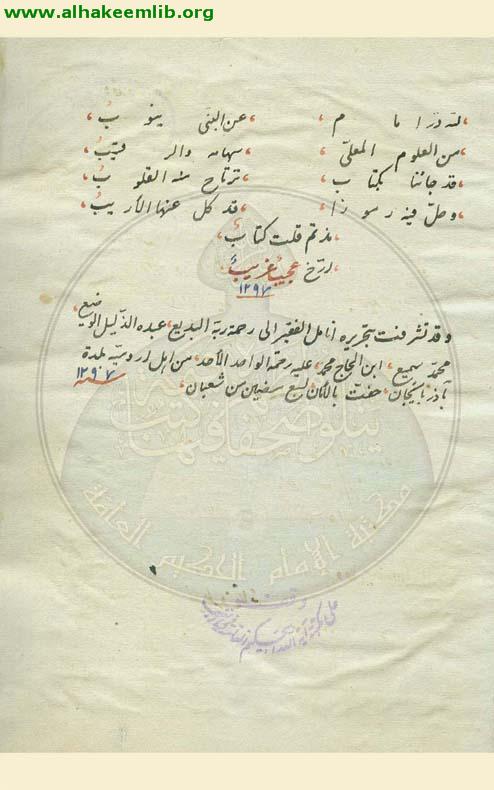 www.alhakeemlib.org
لله درّ اما م عن البنى ينو ب
من العلوم المعلّى سهامه والر قيبُ
قد جائنا بكتا ب ترتاح منه القلو ب
وحلّ فيه رسو زا قد كل عنها الأريبُ
مذ تم قلت كتا بٌ
ارّخ عجيبٌ غريبٌ
١٢٩٧
وقد تشرفت بتحريره انامل الفقير الى رحمة ربه البديع، عبده الذّليل الوضيع
محمّد سميع، ابن الحاج محمد، عليه رحمة الواحد الأحد، من اهل اروميّه بلدة
بآذربايجان، حفّت بالأمان، لسبع مضين من شعبان، سنه ١٢٩٧
مكتبة الإمام الحكيم العامة